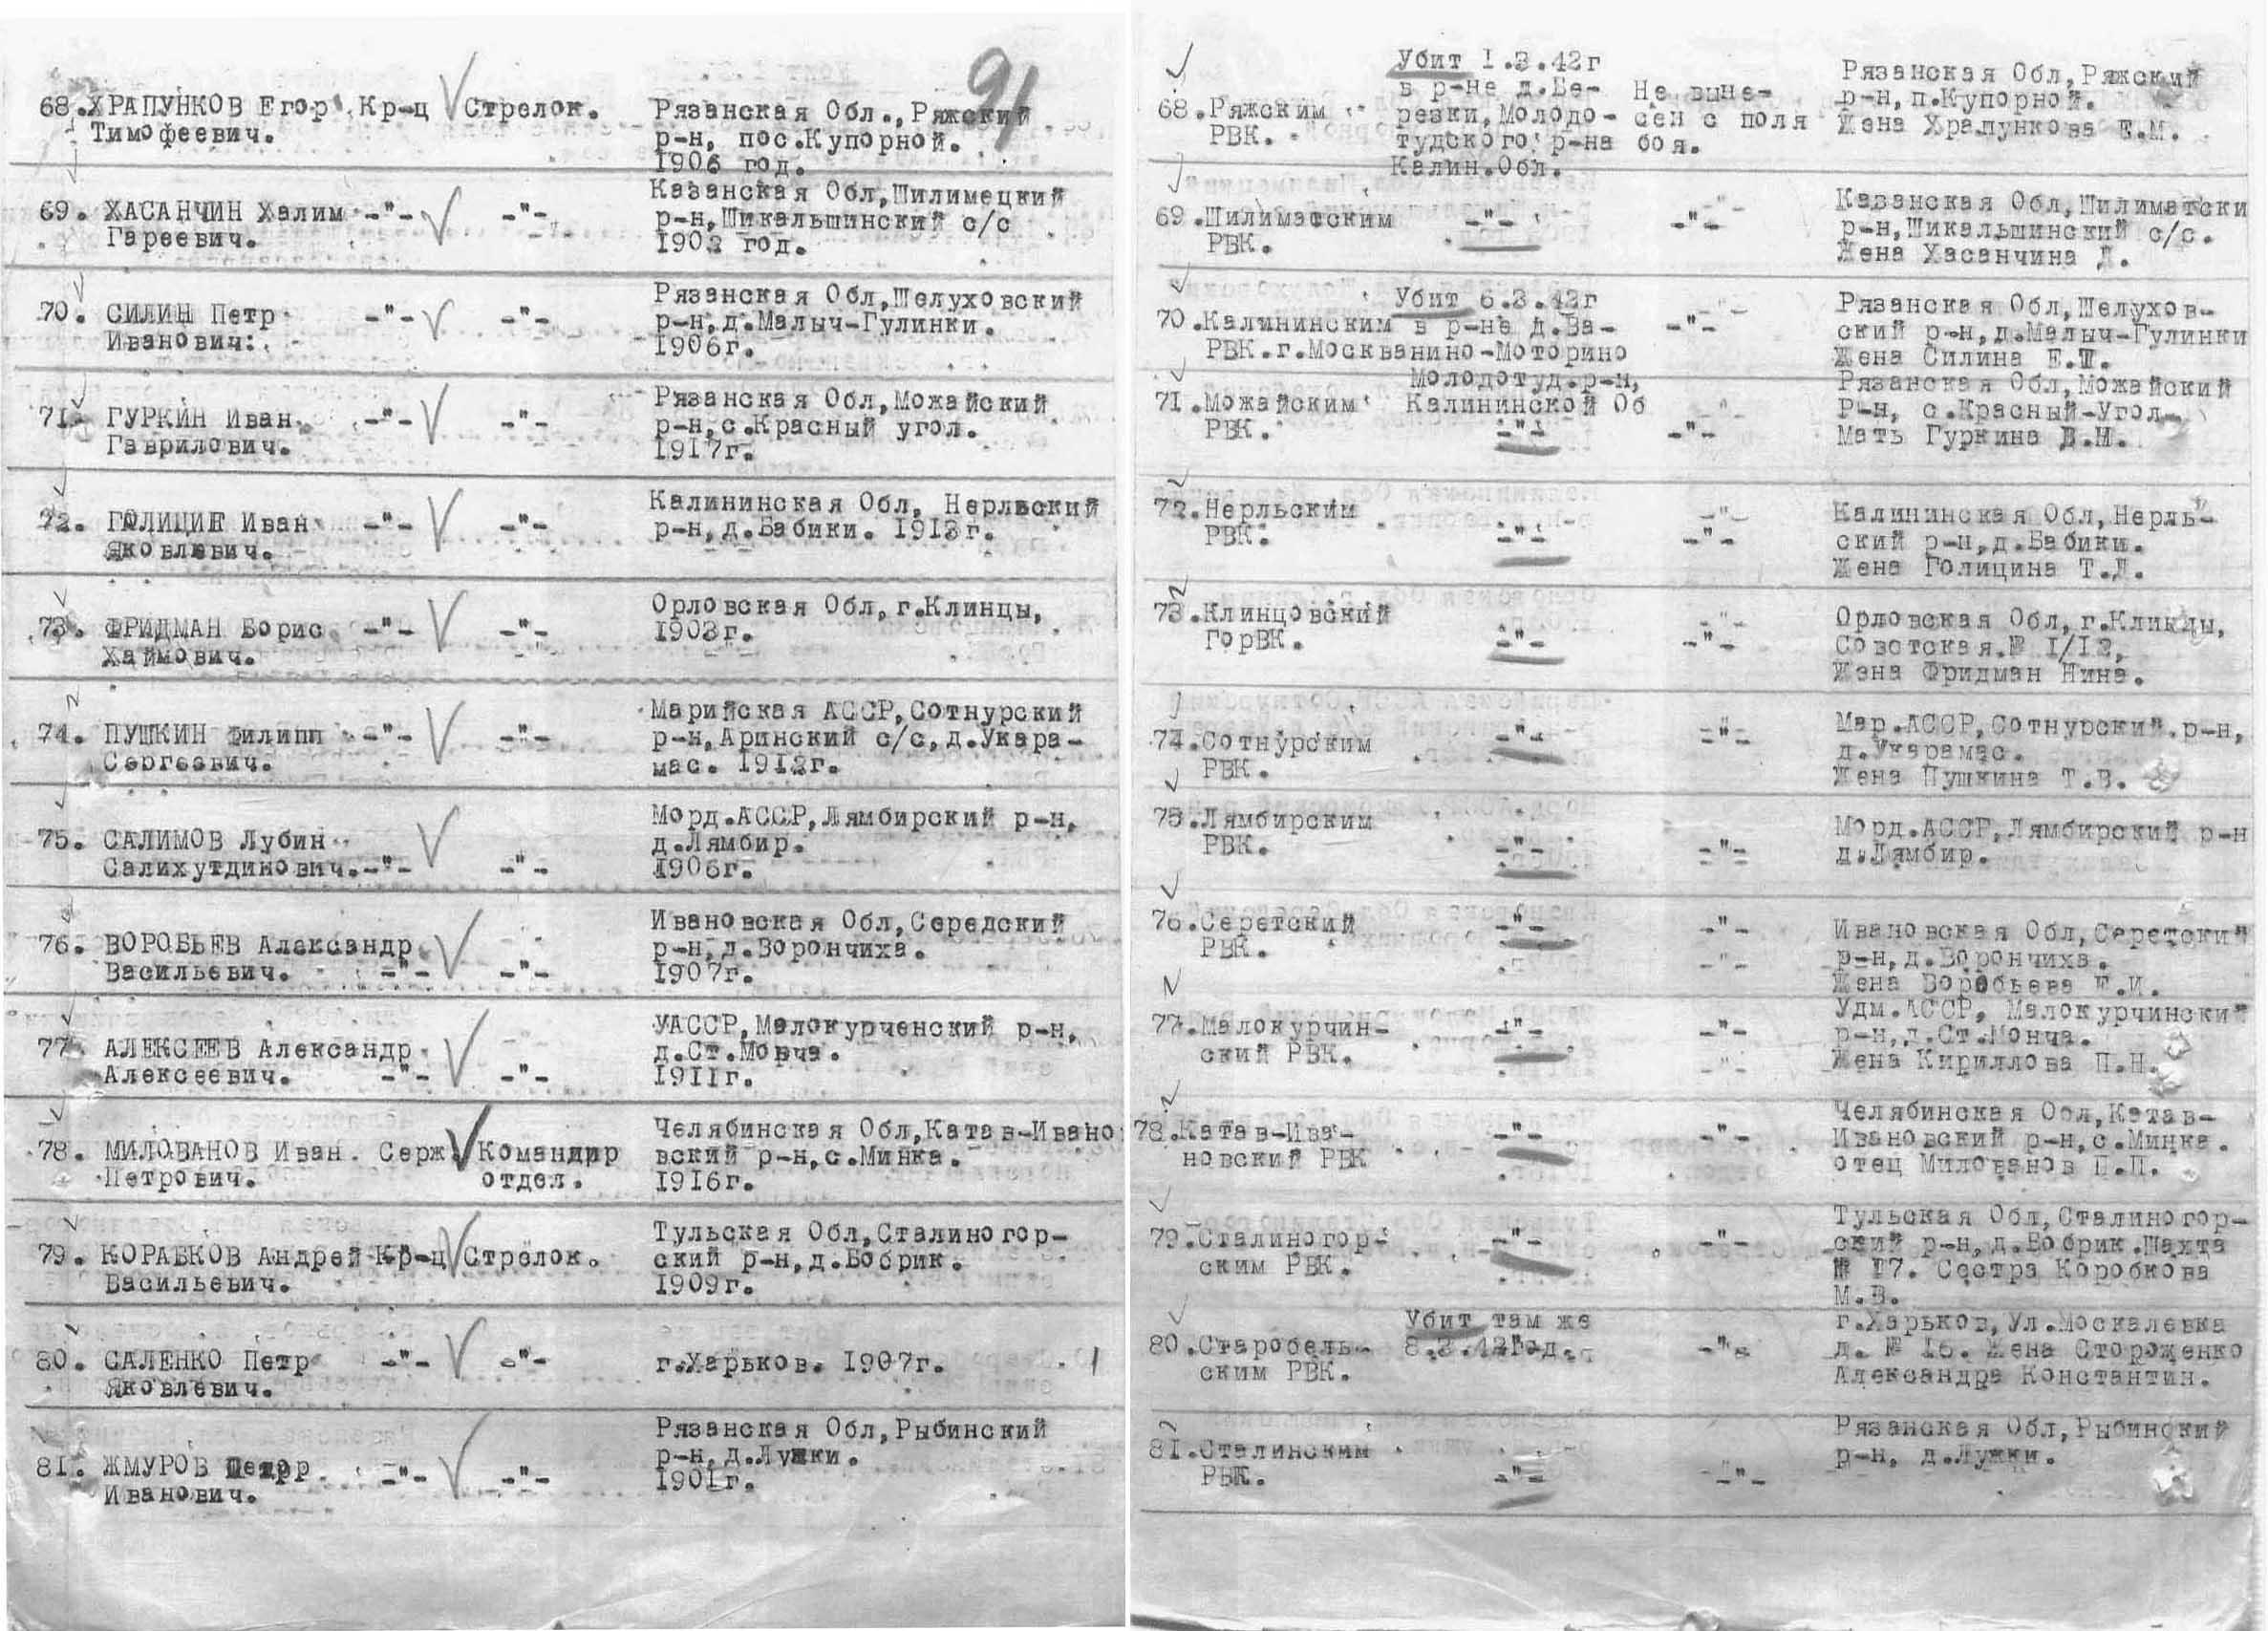 91
68.ХРАПУНКОВ Егор Кр-ц Стрелок. Рязанская Обл., Ряжский
Тимофеевич. р-н, пос.Купорной.
1906 год.
69. ХАСАНЧИН Халим -"- -"- Казанская Обл,Шилимецкий
Гареевич. р-н,Шикальшинский с/с
1902 год.
70. СИЛИН Петр -"- -"- Рязанская Обл,Шелуховский
Иванович. р-н,д.Малыч-Гулинки.
1906г.
71. ГУРКИН Иван -"- -"- Рязанская Обл,Можайский
Гаврилович. р-н,с.Красный угол.
1917г.
72. ГОЛИЦИН Иван -"- -"- Калининская Обл, Нерльский
Яковлевич. р-н,д.Бабики. 1913г.
73. ФРИДМАН Борис -"- -"- Орловская Обл,г.Клинцы,
Хаймович. 1903г.
74. ПУШКИН Филипп -"- -"- Марийская АССР,Сотнурский
Сергеевич. р-н,Аринский с/с,д.Укара-
мас. 1912г.
75. САЛИМОВ Лубин Морд.АССР,Лямбирский р-н,
Салихутдинович.-"- -"- д.Лямбир.
1906г.
76. ВОРОБЬЕВ Александр Ивановская Обл,Середский
Васильевич. -"- -"- р-н,д.Ворончиха.
1907г.
77. АЛЕКСЕЕВ Александр УАССР,Малокурченский р-н,
Алексеевич. -"- -"- д.Ст.Монча.
1911г.
78. МИЛОВАНОВ Иван Серж. Командир Челябинская Обл,Катав-Ивано
Петрович. отдел. вский р-н,с.Минка.
1916г.
79. КОРАБКОВ Андрей Кр-ц Стрелок. Тульская Обл,Сталиногор-
Васильевич. ский р-н,д.Бобрик.
1909г.
80. САЛЕНКО Петр -"- -"- г.Харьков. 1907г.
Яковлевич.
81. ЖМУРОВ Петр -"- -"- Рязанская Обл,Рыбинский
Иванович. р-н,д.Лужки.
1901г.
68.Ряжским Убит 1.3.42г Не выне- Рязанская Обл,Ряжский
РВК. в р-не д.Бе- сен с поля р-н,п.Купорной.
резки,Молодо- боя. Жена Храпункова Е.М.
тудского р-на
Калин.Обл.
69.Шилиматским -"- -"- Казанская Обл,Шилиматски
РВК. р-н,Шикальшинский с/с.
Жена Хасанчина Д.
70.Калининским Убит 6.3.42г -"- Рязанская Обл,Шелухов-
РВК.г.Москва в р-не д.Ва- ский р-н,д.Малыч-Гулинки
нино-Моторино Жена Силина Е.Ш.
Молодотуд.р-н,
Калининской Об
71.Можайским -"- -"- Рязанская Обл,Можайский
РВК. Р-н, с.Красный-Угол
Мать Гуркина В.Н.
72.Нерльским -"- -"- Калининская Обл,Нерль-
РВК. ский р-н,д.Бабики.
Жена Голицина Т.Д.
73.Клинцовский -"- -"- Орловская Обл,г.Клинцы,
ГорВК. Советская.№ 1/12,
Жена Фридман Нина.
74.Сотнурским -"- -"- Мар.АССР,Сотнурский.р-н,
РВК. д.Укарамас.
Жена Пушкина Т.В.
75.Лямбирским -"- -"- Морд.АССР,Лямбирский р-н
РВК. д.Лямбир.
76.Серетский -"- -"- Ивановская Обл,Серетский
РВК. р-н,д.Ворончиха.
Жена Воробьева Е.И.
77.Малокурчин- -"- -"- Удм.АССР, Малокурчинский
ский РВК. р-н,д.Ст.Монча.
Жена Кириллова П.Н.
78.Катав-Ива- -"- -"- Челябинская Обл,Катав-
новский РВК Ивановский р-н,с.Минка.
отец Милованов П.П.
79.Сталиногор- -"- -"- Тульская Обл,Сталиногор-
ским РВК. ский р-н,д.Бобрик.Шахта
№ 17. Сестра Коробкова
М.В.
80.Старобель- Убит там же -"- г.Харьков,Ул.Москалевка
ским РВК. 8.3.42год. д. № 16. Жена Стороженко
Александра Константин.
81.Сталинским -"- -"- Рязанская Обл,Рыбинский
РВК. р-н, д.Лужки.